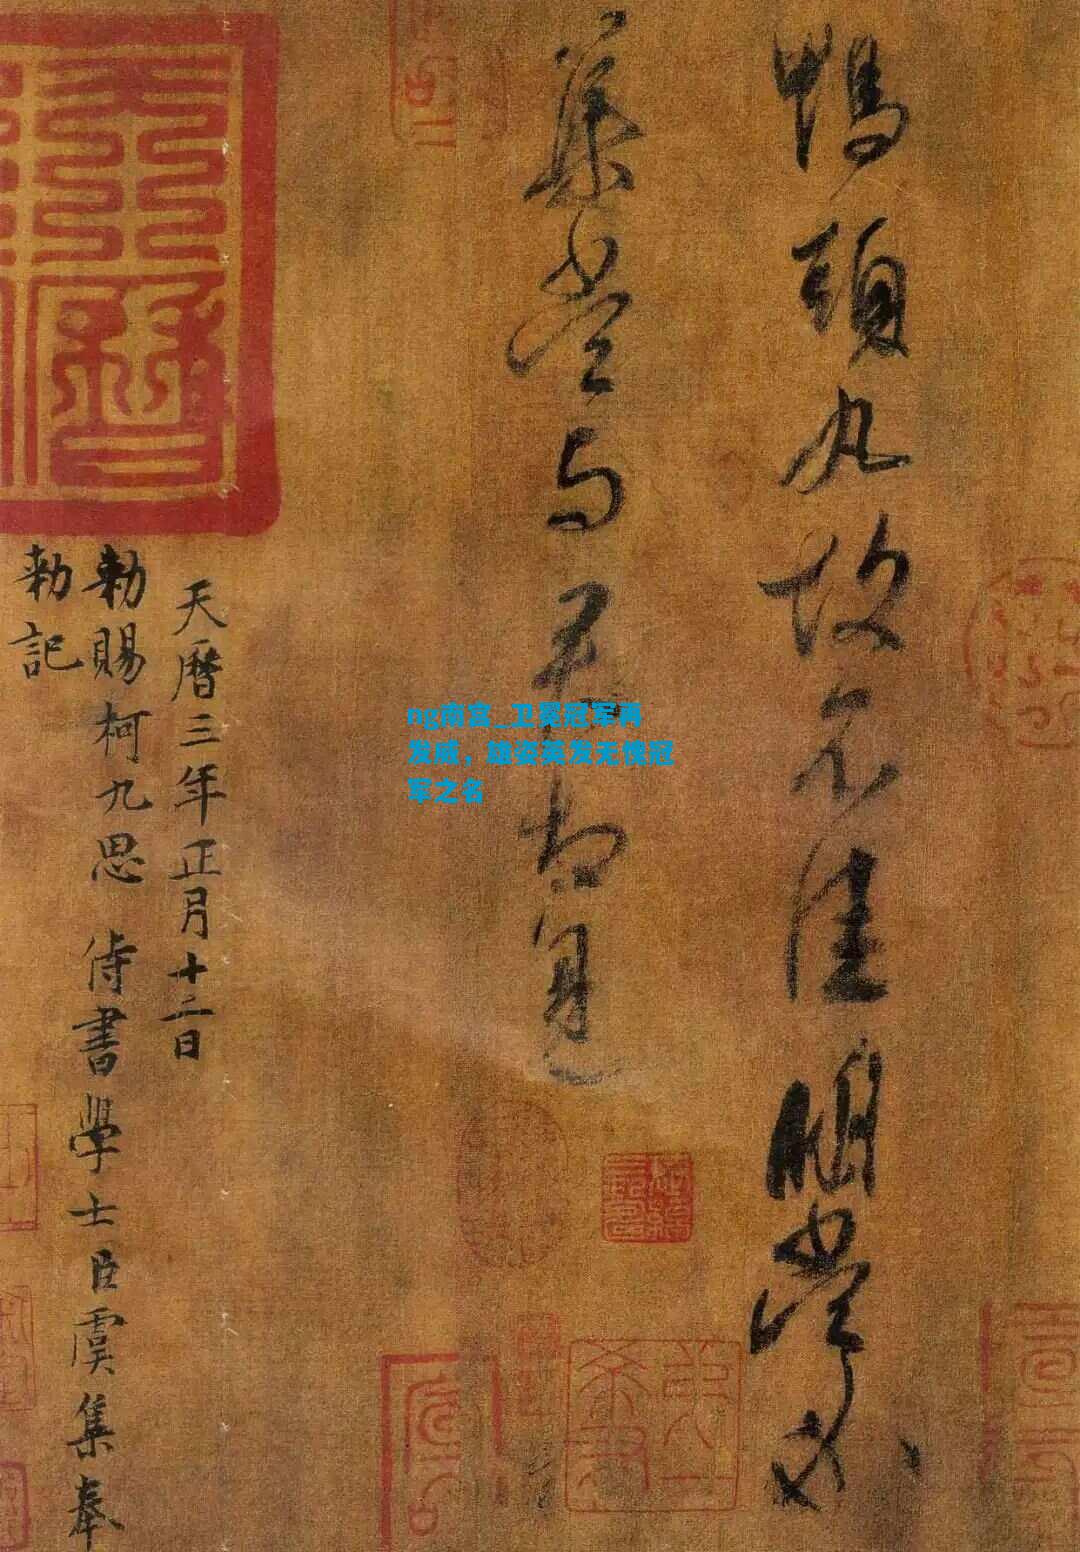 鴨頭丸故不佳明當必
集當與君相見
天曆三年正月十二日
勅賜柯九思侍書學士臣虞集奉
勅記
天曆
ng南宫_卫冕冠军再
发威，雄姿英发无愧冠
军之名